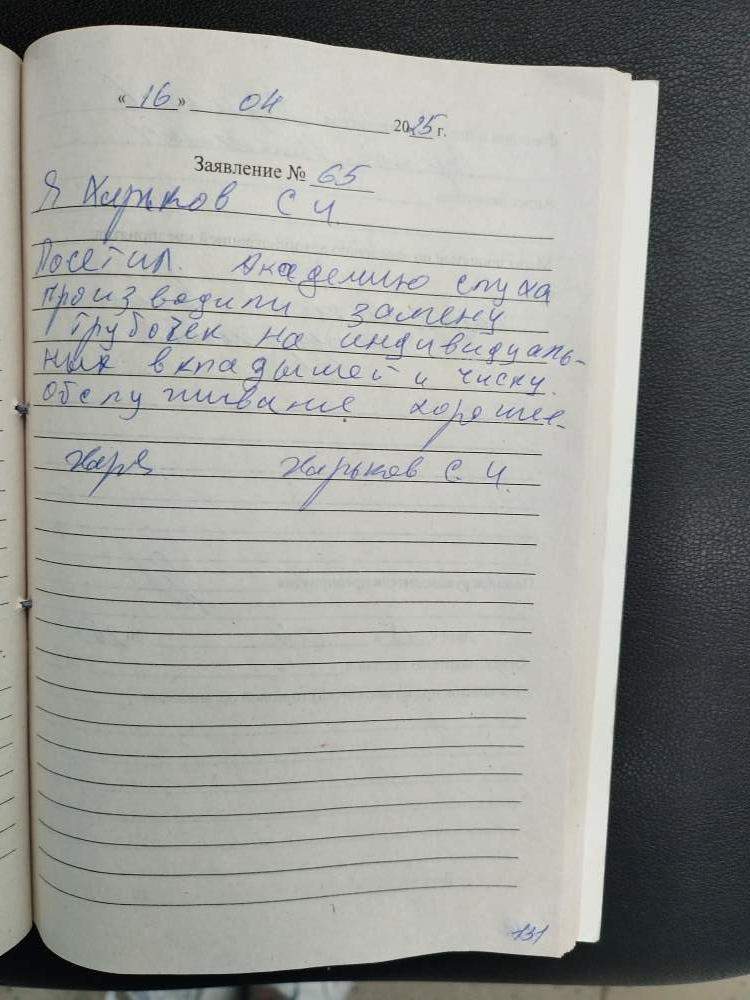 «16» 04 2025 г.
Заявление № 65
Я Харьков С И
Посетил. Академию слуха
производили замену
трубочек на индивидуаль-
ных вкладышей и чиску.
Обслуживание хорошее.
Харьков С. И.
131